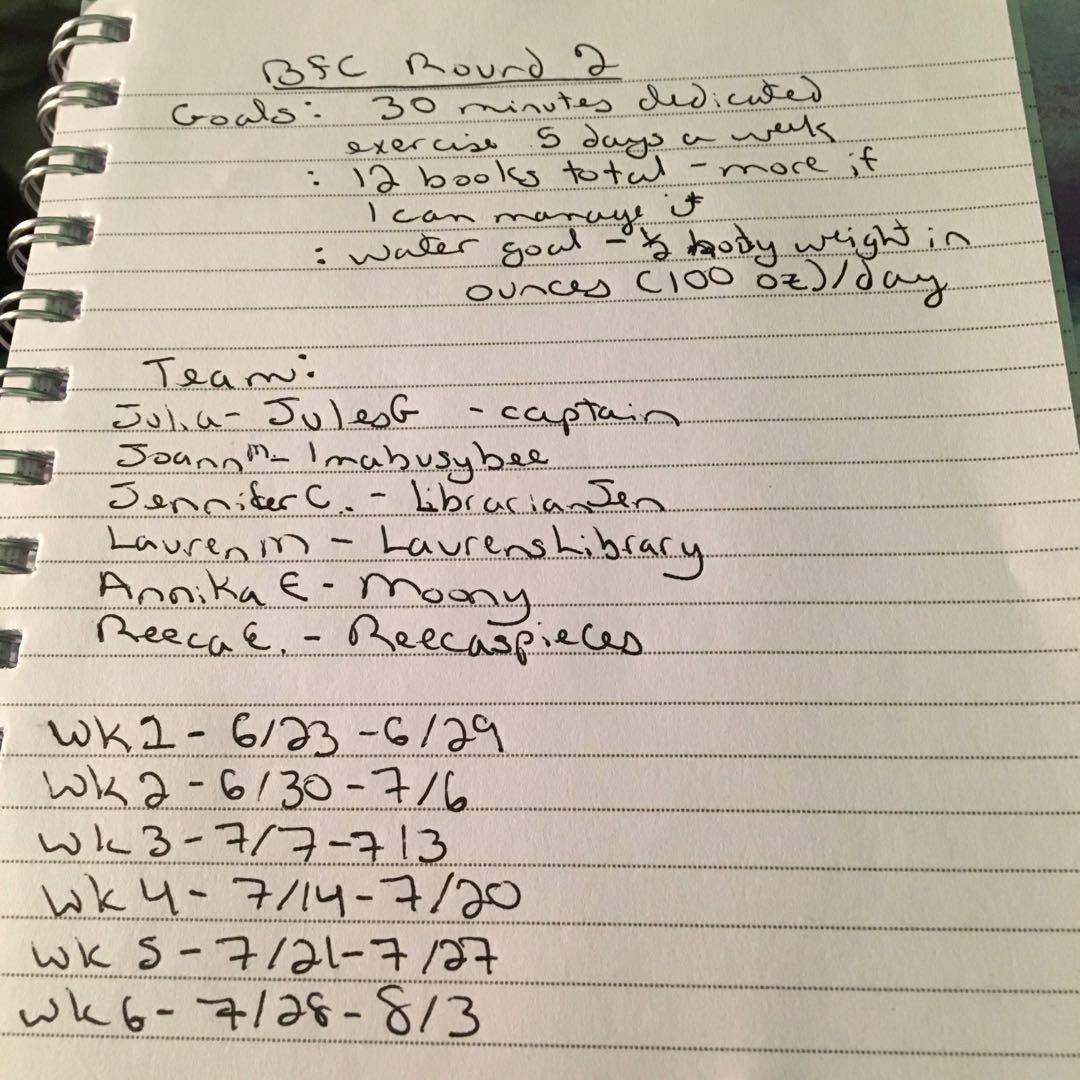 BFC Round 2
Goals: 30 minutes dedicated
exercise 5 days a week
: 12 books total - more if
I can manage it
: water goal - ½ body weight in
ounces (100 oz)/day
Team:
Julia - JulesG - captain
Joann M - Imabusybee
Jennifer C. - LibrarianJen
Lauren M - LaurensLibrary
Annika E - Moony
Reeca E. - Reecaspieces
WK 1 - 6/23 - 6/29
WK 2 - 6/30 - 7/6
WK 3 - 7/7 - 713
WK 4 - 7/14 - 7/20
WK 5 - 7/21 - 7/27
WK 6 - 7/28 - 8/3